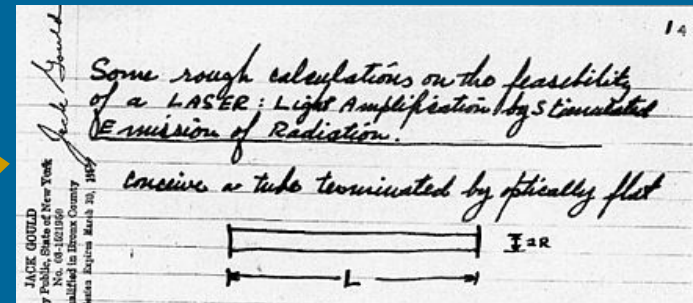 14
Some rough calculations on the feasibility
of a LASER: Light Amplification by Stimulated
Emission of Radiation.
conceive a tube terminated by optically flat
= R
L
Jack Gould
JACK GOULD
y Public, State of New York
No. 03-1521950
alified in Bronx County
Expires March 30, 1959